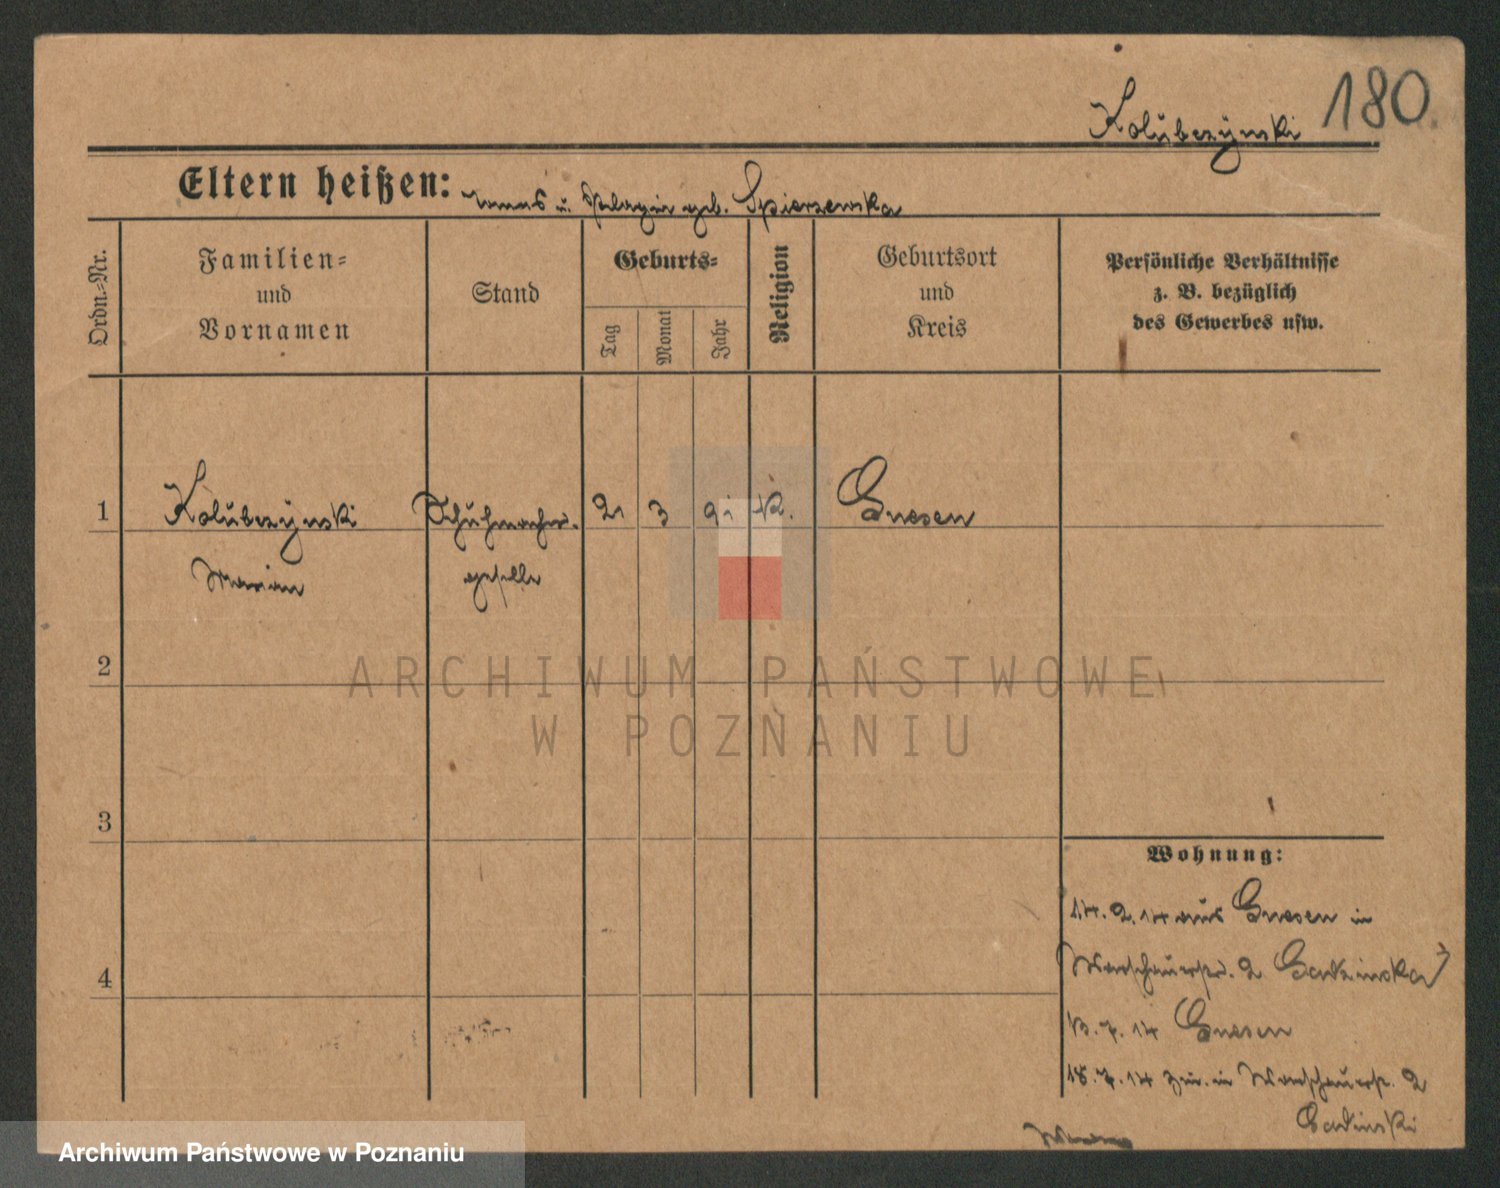 180
Kolubczynski
Eltern heißen: u. Pelagia geb. Spierzewska
Ordn.-Nr.
Familien=
und
Vornamen
Stand
Geburts=
Tag
Monat
Jahr
Religion
Geburtsort
und
Kreis
Persönliche Verhältnisse
z. B. bezüglich
des Gewerbes usw.
1
Kolubczynski
Marian
Schuhmacher-
geselle
21
3
91
K.
Gnesen
2
3
4
Wohnung:
14. 2. 14 aus Gnesen in
Warschauerstr. 2
13. 7. 14 Gnesen
18. 7. 14 zur. in Warschauerstr. 2
ARCHIWUM PAŃSTWOWE
W POZNANIU
Archiwum Państwowe w Poznaniu